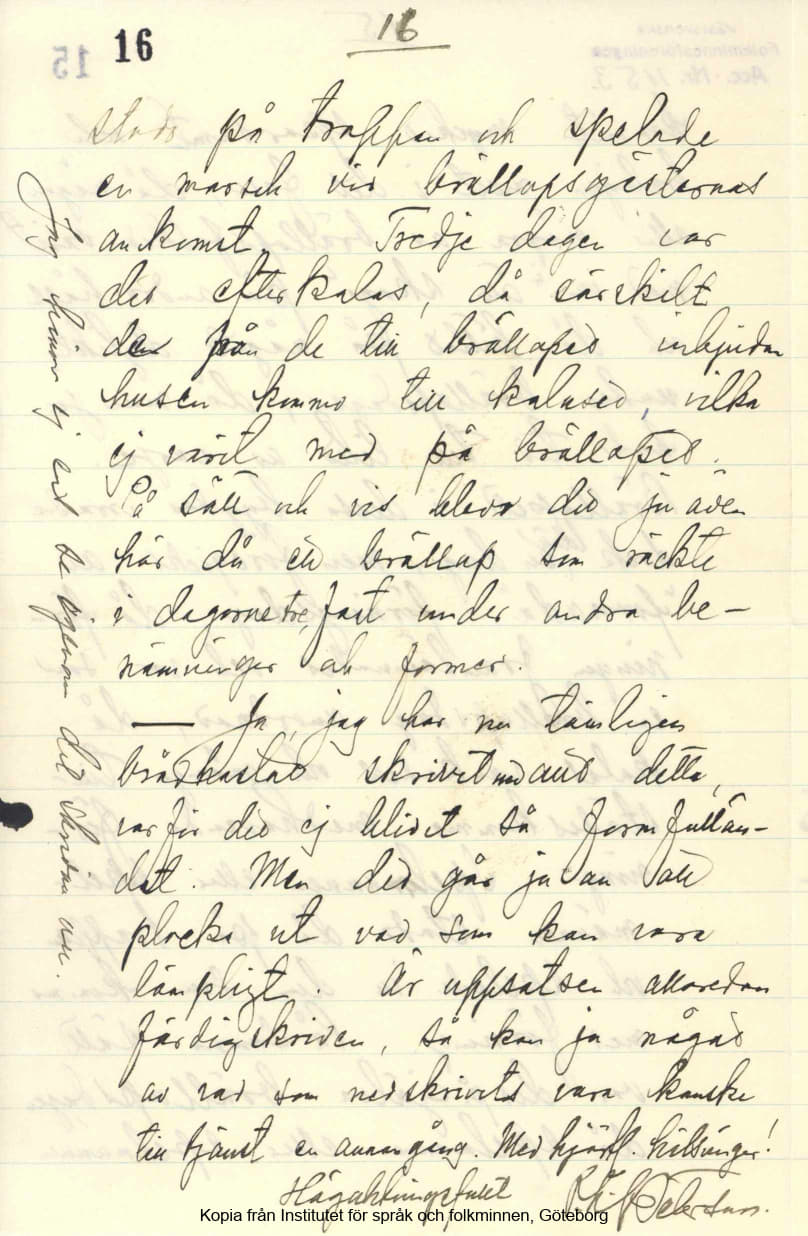 16
16
15
Västsvenska
Folkminnesföreningen
Acc. Nr.
stods på trappan och spelade
en marsch vid bröllopsgästernas
ankomst. Tredje dagen var
det efterkalas, då särskilt
den från de till bröllopet inbjudna
husen kommo till kalaset, vilka
ej varit med på bröllopet.
På sätt och vis blev det ju även
här då ett bröllop som räckte
i dagarne tre, fast under andra be-
nämningar och former.
— Ja, jag har nu tämligen
brådkastat skrivit detta,
varför det ej blivit så formfullän-
dat. Men det går ju an att
plocka ut vad som kan vara
lämpligt. Är uppsatsen allaredan
färdigskriven, så kan ju något
av vad som nedskrivits vara kanske
till tjänst en annan gång. Med hjärtl. hälsningar!
Högaktningsfullt Petersson.
Jag hinner ej att se igenom det skrivna nu.
Kopia från Institutet för språk och folkminnen, Göteborg